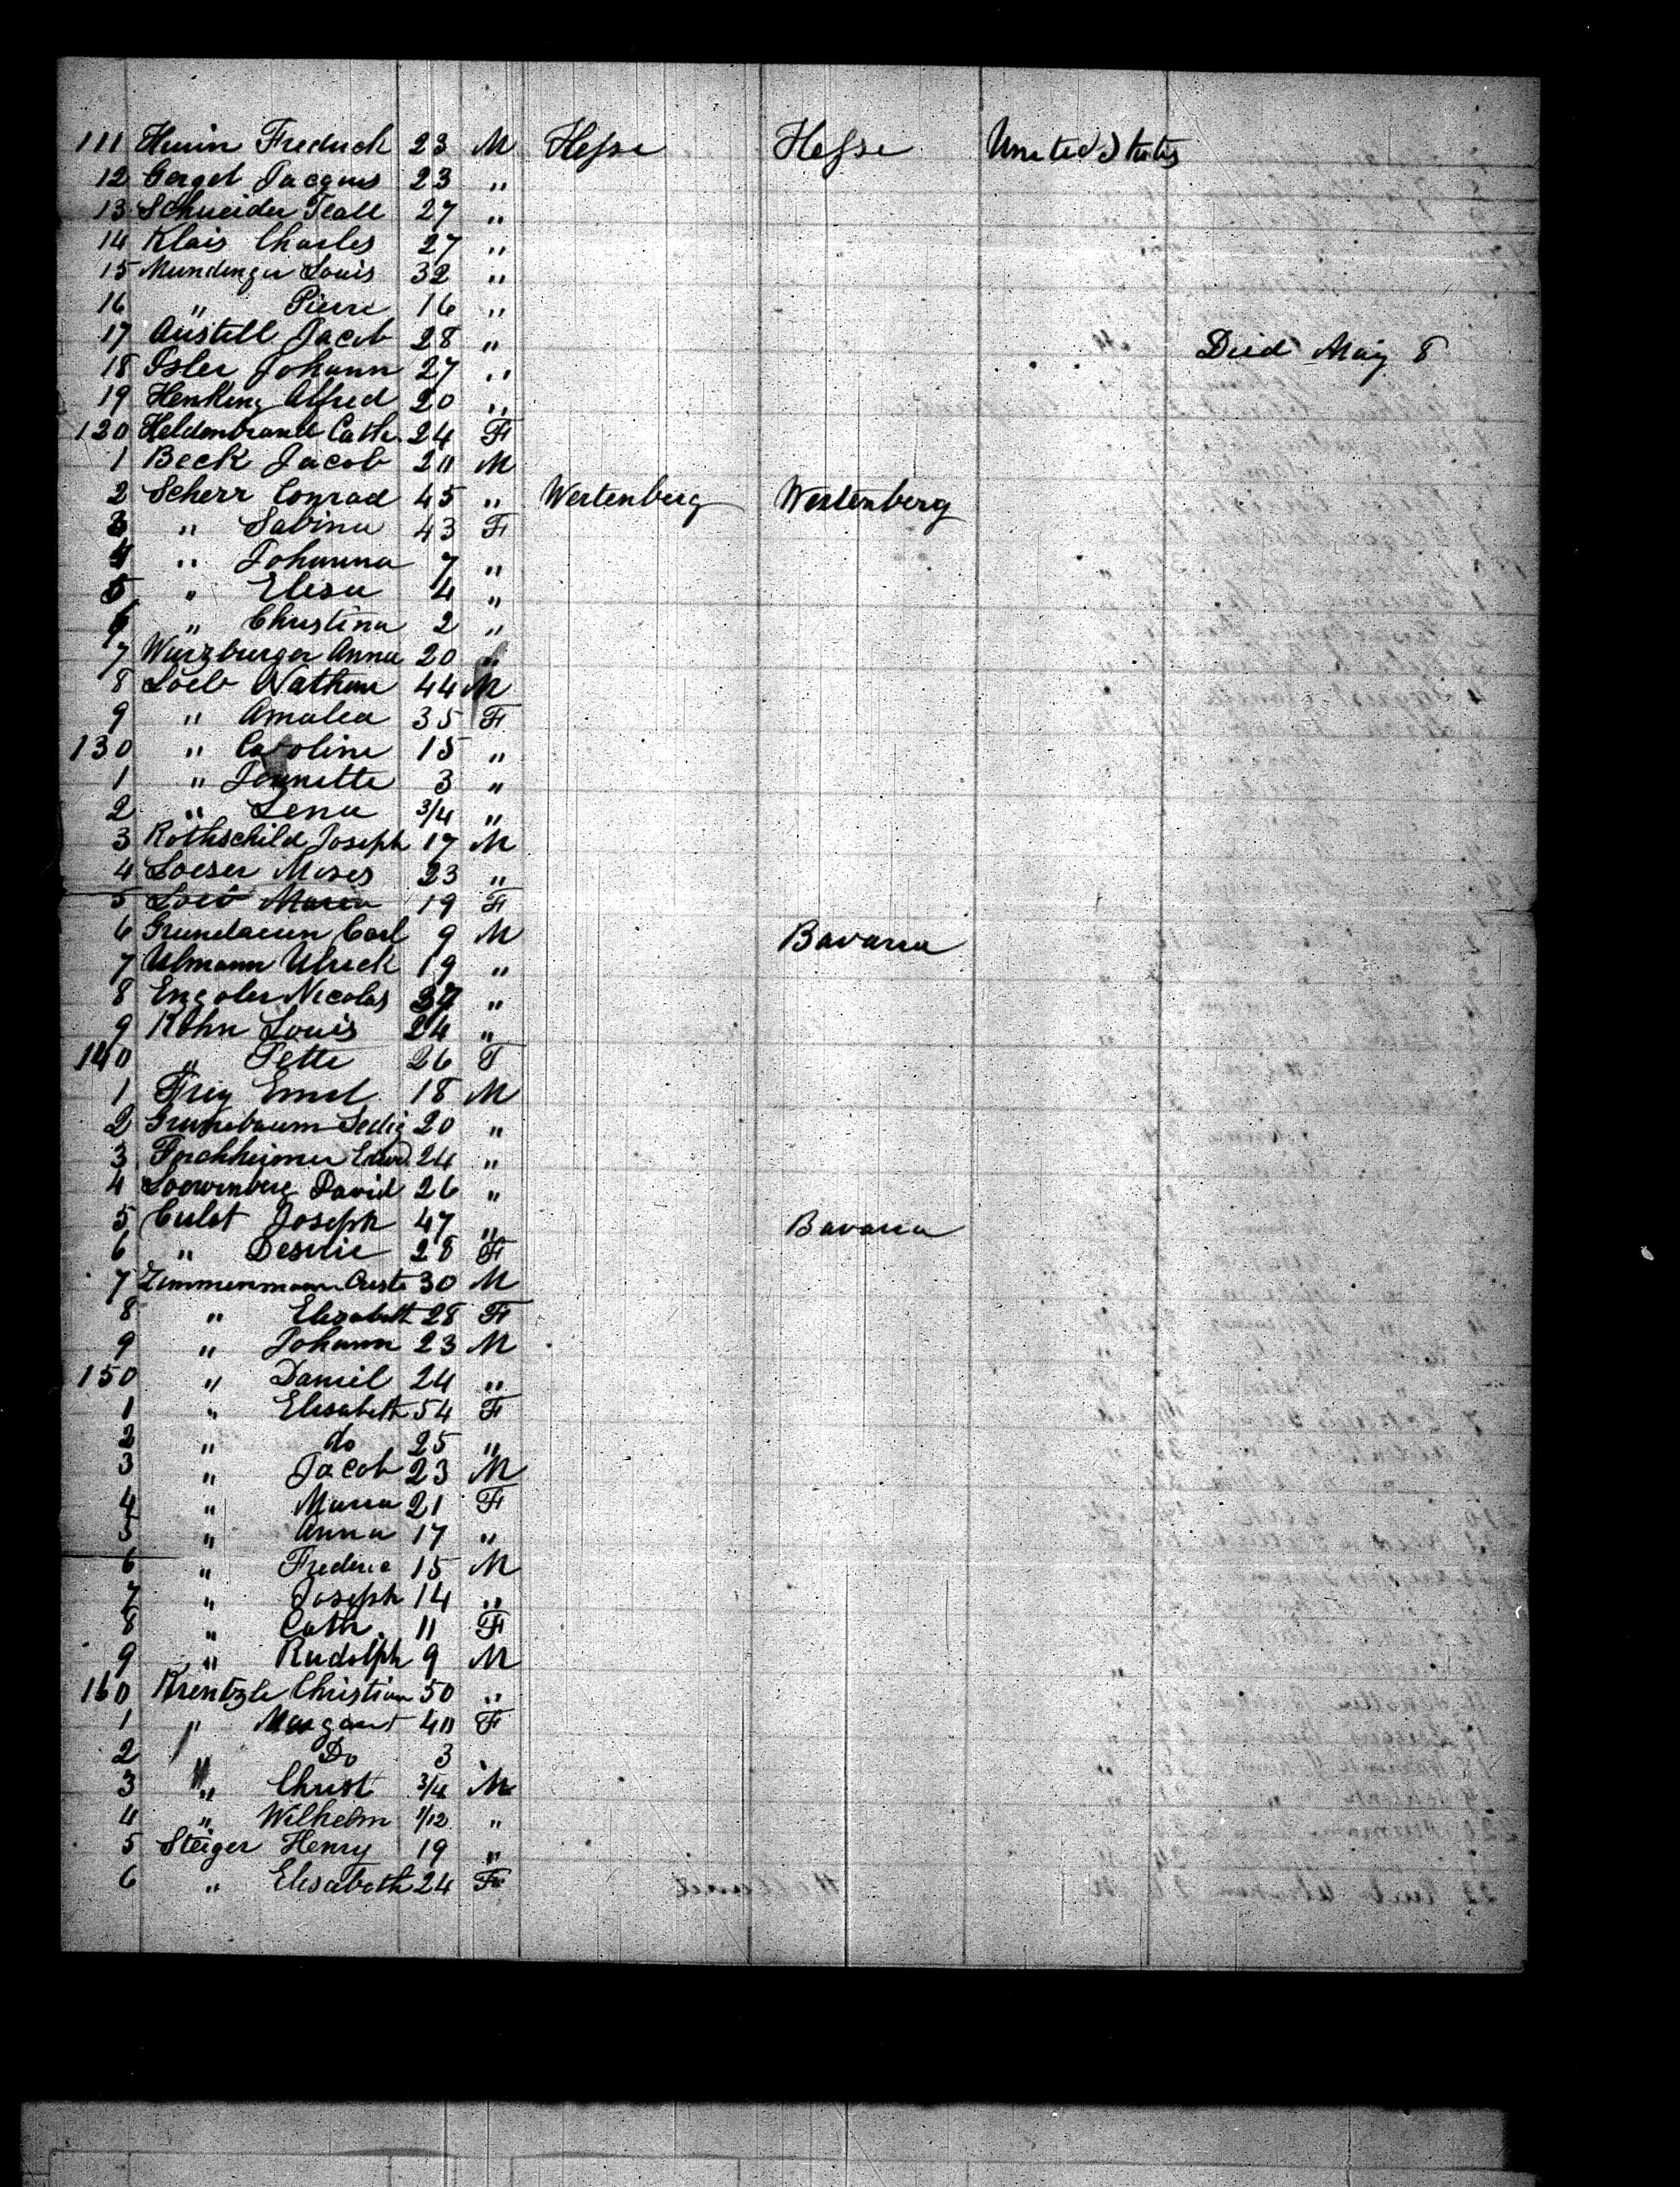 111 Husin Frederick 23 M Hesse Hesse United States
12 Gergel Jacques 23 "
13 Schneider 27 "
14 Klais Charles 27 "
15 Mundinger Louis 32 "
16 " Pierre 16 "
17 Austell Jacob 28 " Died May 8
18 Isler Johann 27 "
19 Henking Alfred 20 "
120 Heldenbrand Cath. 24 F
1 Beck Jacob 20 M
2 Scherr Conrad 45 " Wertenberg Wertenberg
3 " Sabina 43 F
4 " Johanna 7 "
5 " Elisa 4 "
6 " Christina 2 "
7 Wurzburger Anna 20 "
8 Loeb Nathan 44 M
9 " Amalea 35 F
130 " Caroline 15 "
1 " Jennette 3 "
2 " Lena 3/4 "
3 Rothschild Joseph 17 M
4 Loeser Moses 23 "
5 Loeb Maria 19 F
6 Carl 9 M Bavaria
7 Ulmann Ulrick 19 "
8 Engoler Nicolas "
9 Kohn Louis 24 "
140 " Jette 26 F
1 Frey Emel 18 M
2 Grunebaum Selig 20 "
3 Forchheimer Edwd. 24 "
4 Loewenberg David 26 "
5 Culot Joseph 47 " Bavaria
6 " Desirie 28 F
7 Zimmermann 30 M
8 " Elisabeth 28 F
9 " Johann 23 M
150 " Daniel 24 "
1 " Elisabeth 54 F
2 " do 25 "
3 " Jacob 23 M
4 " Maria 21 F
5 " Anna 17 "
6 " Frederic 15 M
7 " Joseph 14 "
8 " Cath. 11 F
9 " Rudolph 9 M
160 Krentzle Christian 50 "
1 " Margaret 40 F
2 " Do 3
3 " Christ 3/4 M
4 " Wilhelm 1/12 "
5 Steiger Henry 19 "
6 " Elisabeth 24 F